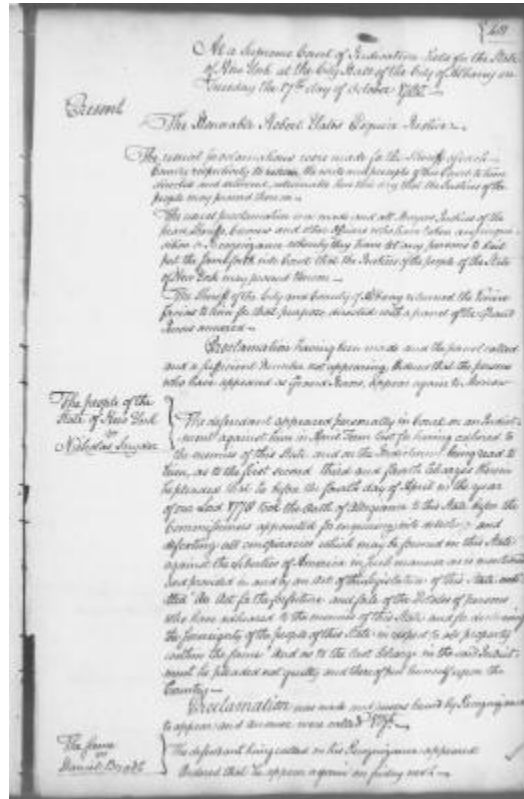 At a Supreme Court of Judicature held for the State
of New York at the City Hall of the City of Albany on
Tuesday the 17th day of October
Present
The Honorable Robert Yates Esquire Justice
The usual proclamations were made for the Sheriff of each
County respectively to return the writs and precepts of this Court to them
directed and delivered, returnable here this day that the Justices of the
people may proceed thereon
The usual proclamation was made and all Mayors Justices of the
peace Sheriffs, Coroners and other officers who have taken any
or Recognizance whereby they have let any persons to bail
put the same forth into Court that the Justices of the people of the State
of New York may proceed thereon
The Sheriff of the City and County of Albany returned the Venire
facias to him for that purpose directed with a panel of the Grand
Jurors annexed
Proclamation having been made and the panel called
and a sufficient number not appearing Ordered that the persons
who have appeared as Grand Jurors, appear again to Morrow
The people of the
State of New York
vs
Nicholas Snyder
The defendant appeared personally in Court on an Indict-
ment against him in Term last for having adhered to
the enemies of this State and on the Indictment being read to
him, as to the first second third and fourth Charges therein
he pleaded that he before the fourth day of April in the year
of our Lord 1778 took the Oath of Allegiance to this State before the
Commissioners appointed for enquiring into detecting and
defeating all conspiracies which may be formed in this State
against the Liberties of America in such manner as is mentioned
and provided in and by an Act of the Legislature of this State
"An Act for the forfeiture and sale of the Estates of persons
who have adhered to the enemies of this State and for declaring
the Sovereignty of the people of this State in respect to all property
within the same" And as to the last Charge in the said Indict-
ment he pleaded not guilty and thereof put himself upon the
Country
Proclamation was made and persons bound by Recognizance
to appear and answer were called
The same
vs
Daniel
The defendant being called on his Recognizance appeared
Ordered that he appear again on friday next